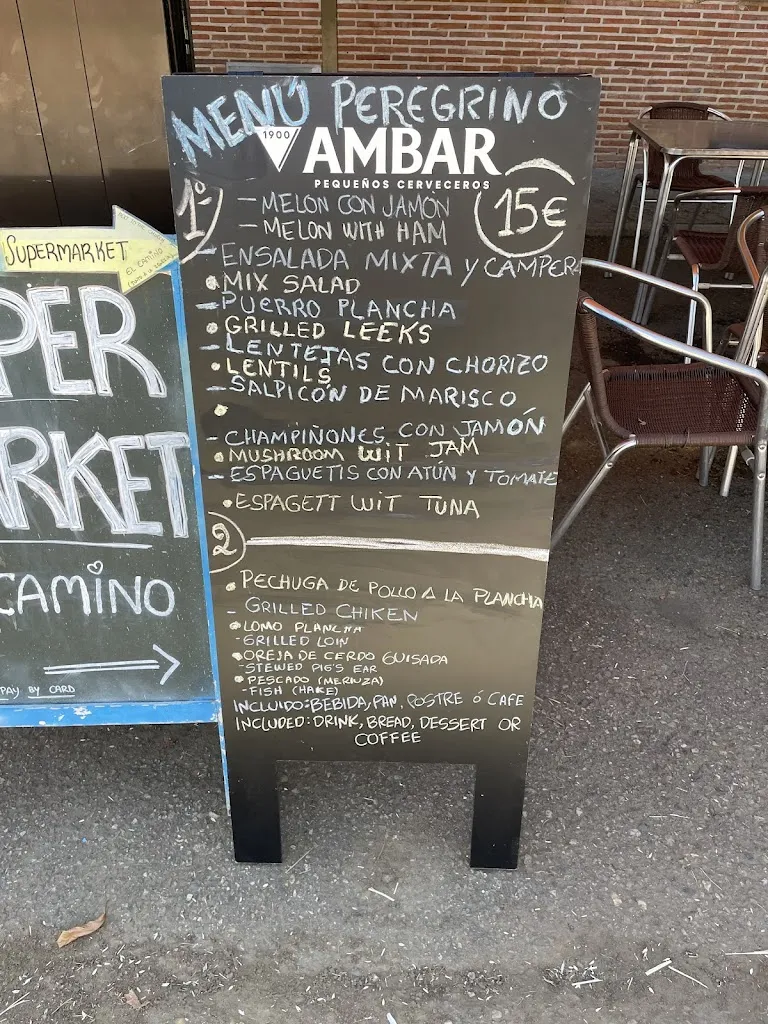 MENÚ PEREGRINO
1900
AMBAR
PEQUEÑOS CERVECEROS
15€
1º
- MELON CON JAMÓN
- MELON WITH HAM
- ENSALADA MIXTA Y CAMPERA
• MIX SALAD
- PUERRO PLANCHA
• GRILLED LEEKS
- LENTEJAS CON CHORIZO
• LENTILS
- SALPICÓN DE MARISCO
•
- CHAMPIÑONES CON JAMÓN
• MUSHROOM WIT JAM
- ESPAGUETIS CON ATÚN Y TOMATE
• ESPAGETT WIT TUNA
2
• PECHUGA DE POLLO A LA PLANCHA
- GRILLED CHIKEN
• LOMO PLANCHA
- GRILLED LOIN
• OREJA DE CERDO GUISADA
- STEWED PIG'S EAR
• PESCADO (MERLUZA)
- FISH (HAKE)
INCLUIDO: BEBIDA, PAN, POSTRE Ó CAFE
INCLUDED: DRINK, BREAD, DESSERT OR
COFFEE
SUPERMARKET
EL CAMINO
PER
RKET
CAMINO
PAY BY CARD